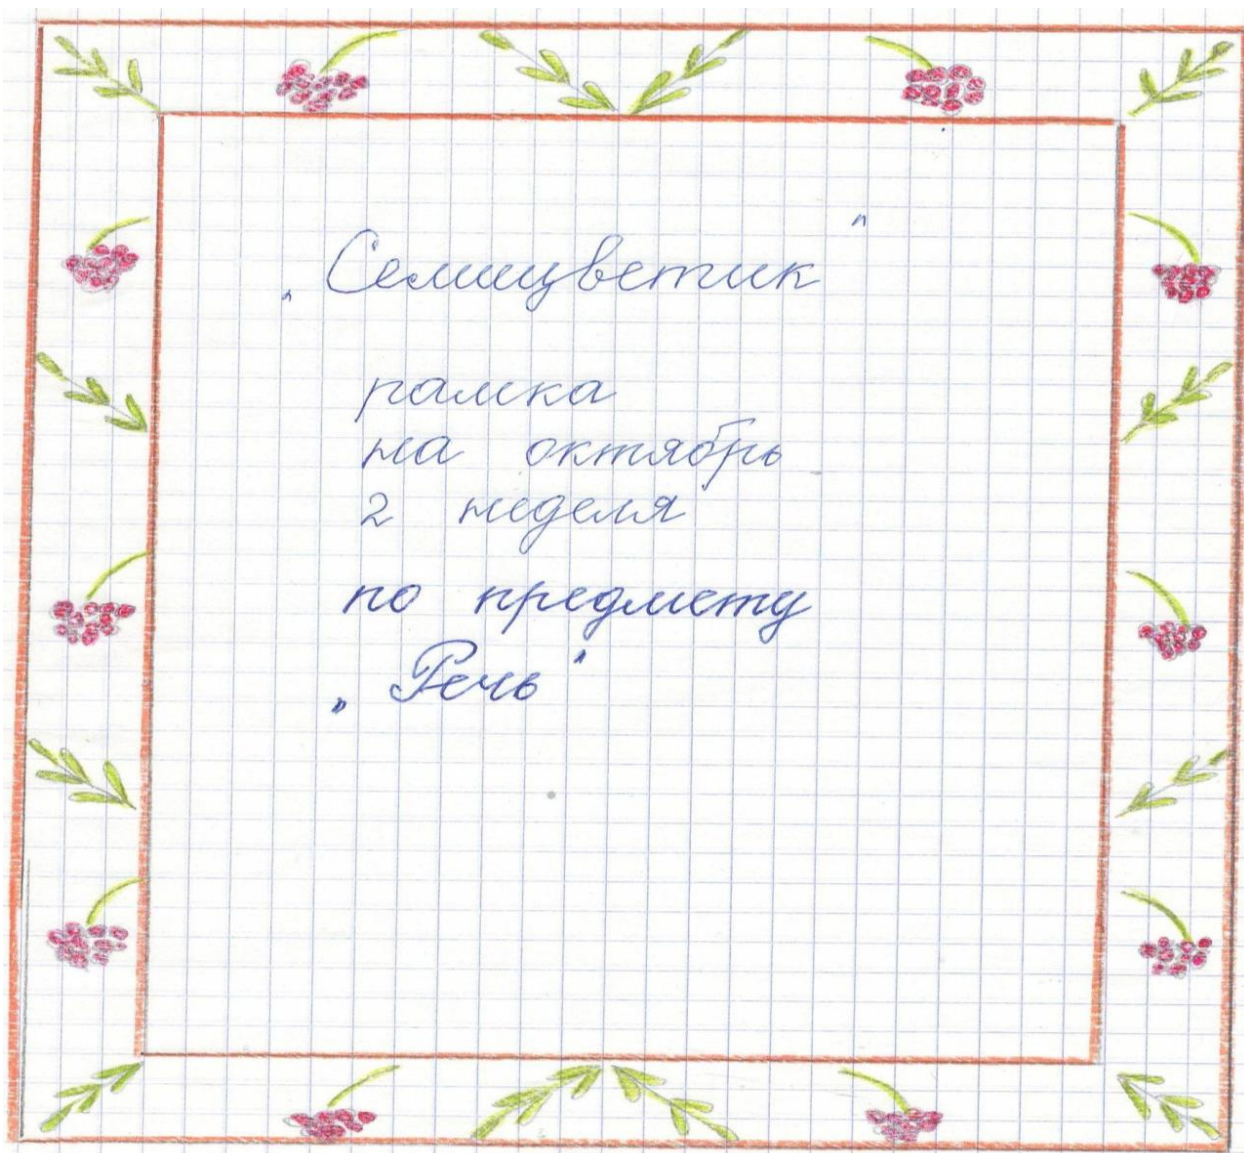 „Семицветик"
рамка
на октябрь
2 неделя
по предмету
„Речь"